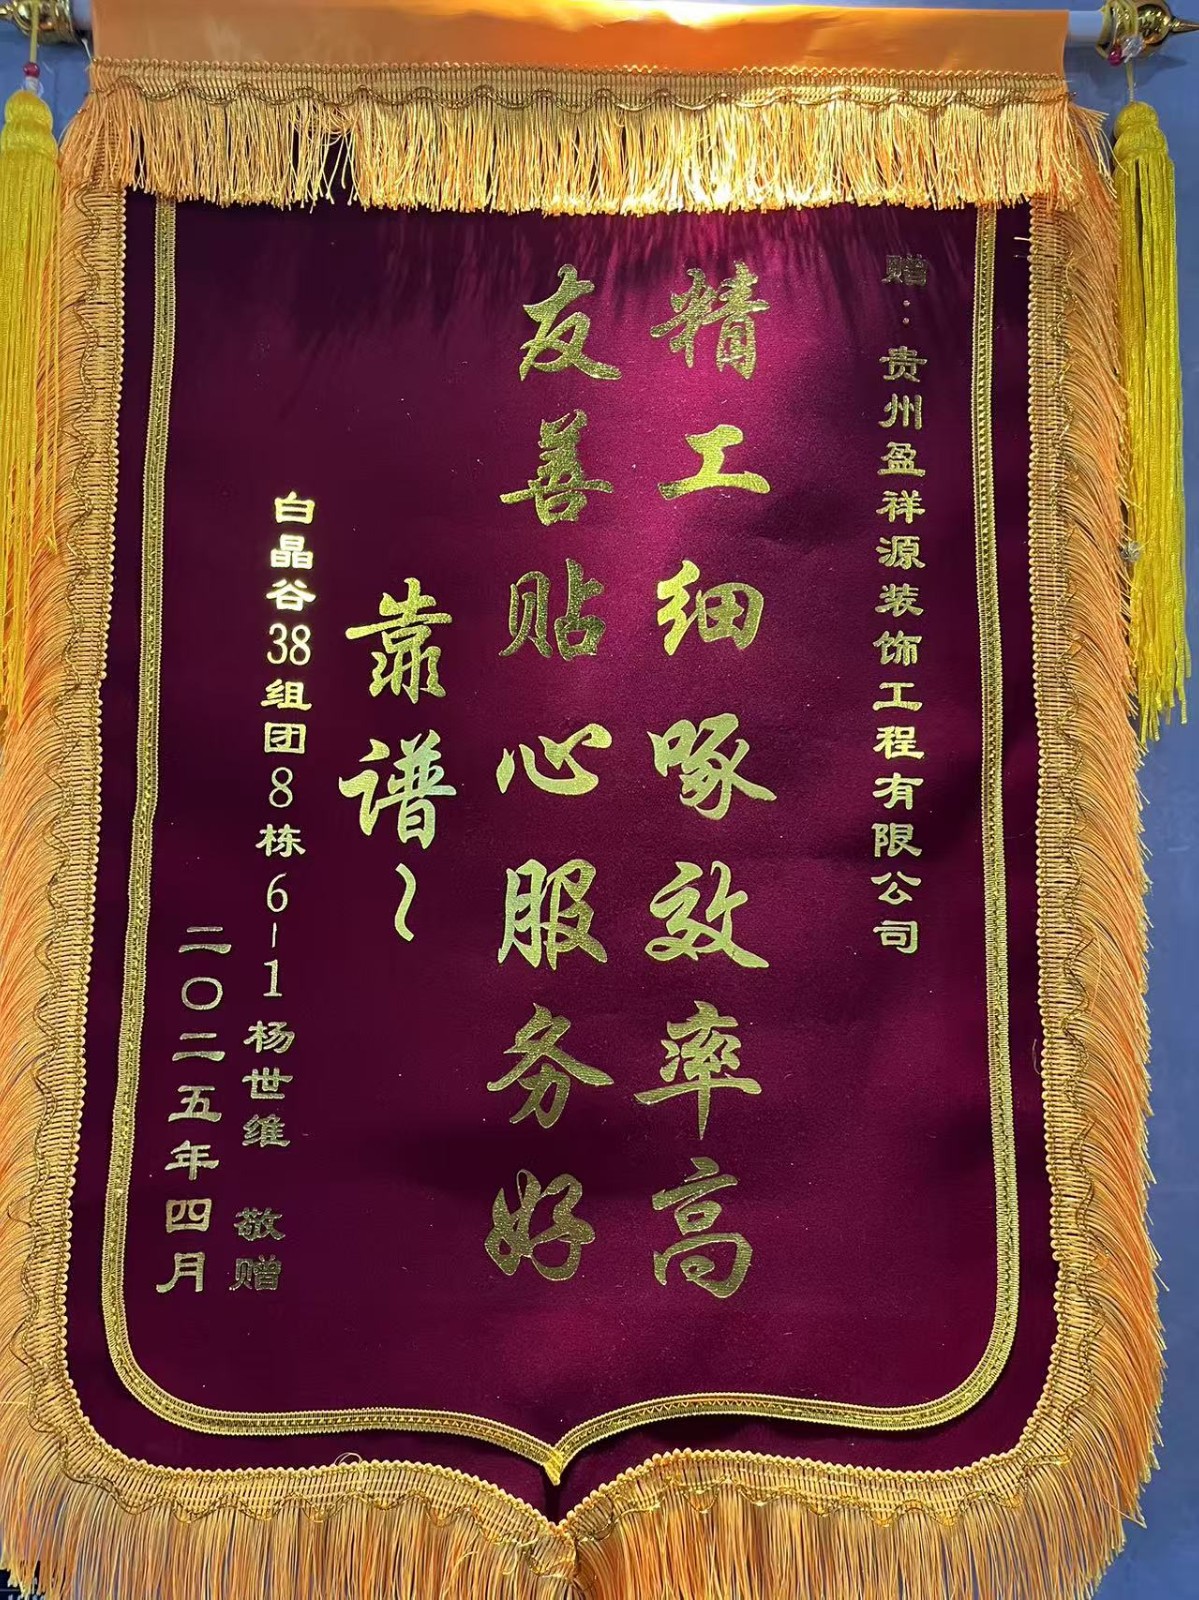 赠：贵州盈祥源装饰工程有限公司
精工细啄效率高
友善贴心服务好
靠谱~
白晶谷38组团8栋6-1杨世维 敬赠
二〇二五年四月